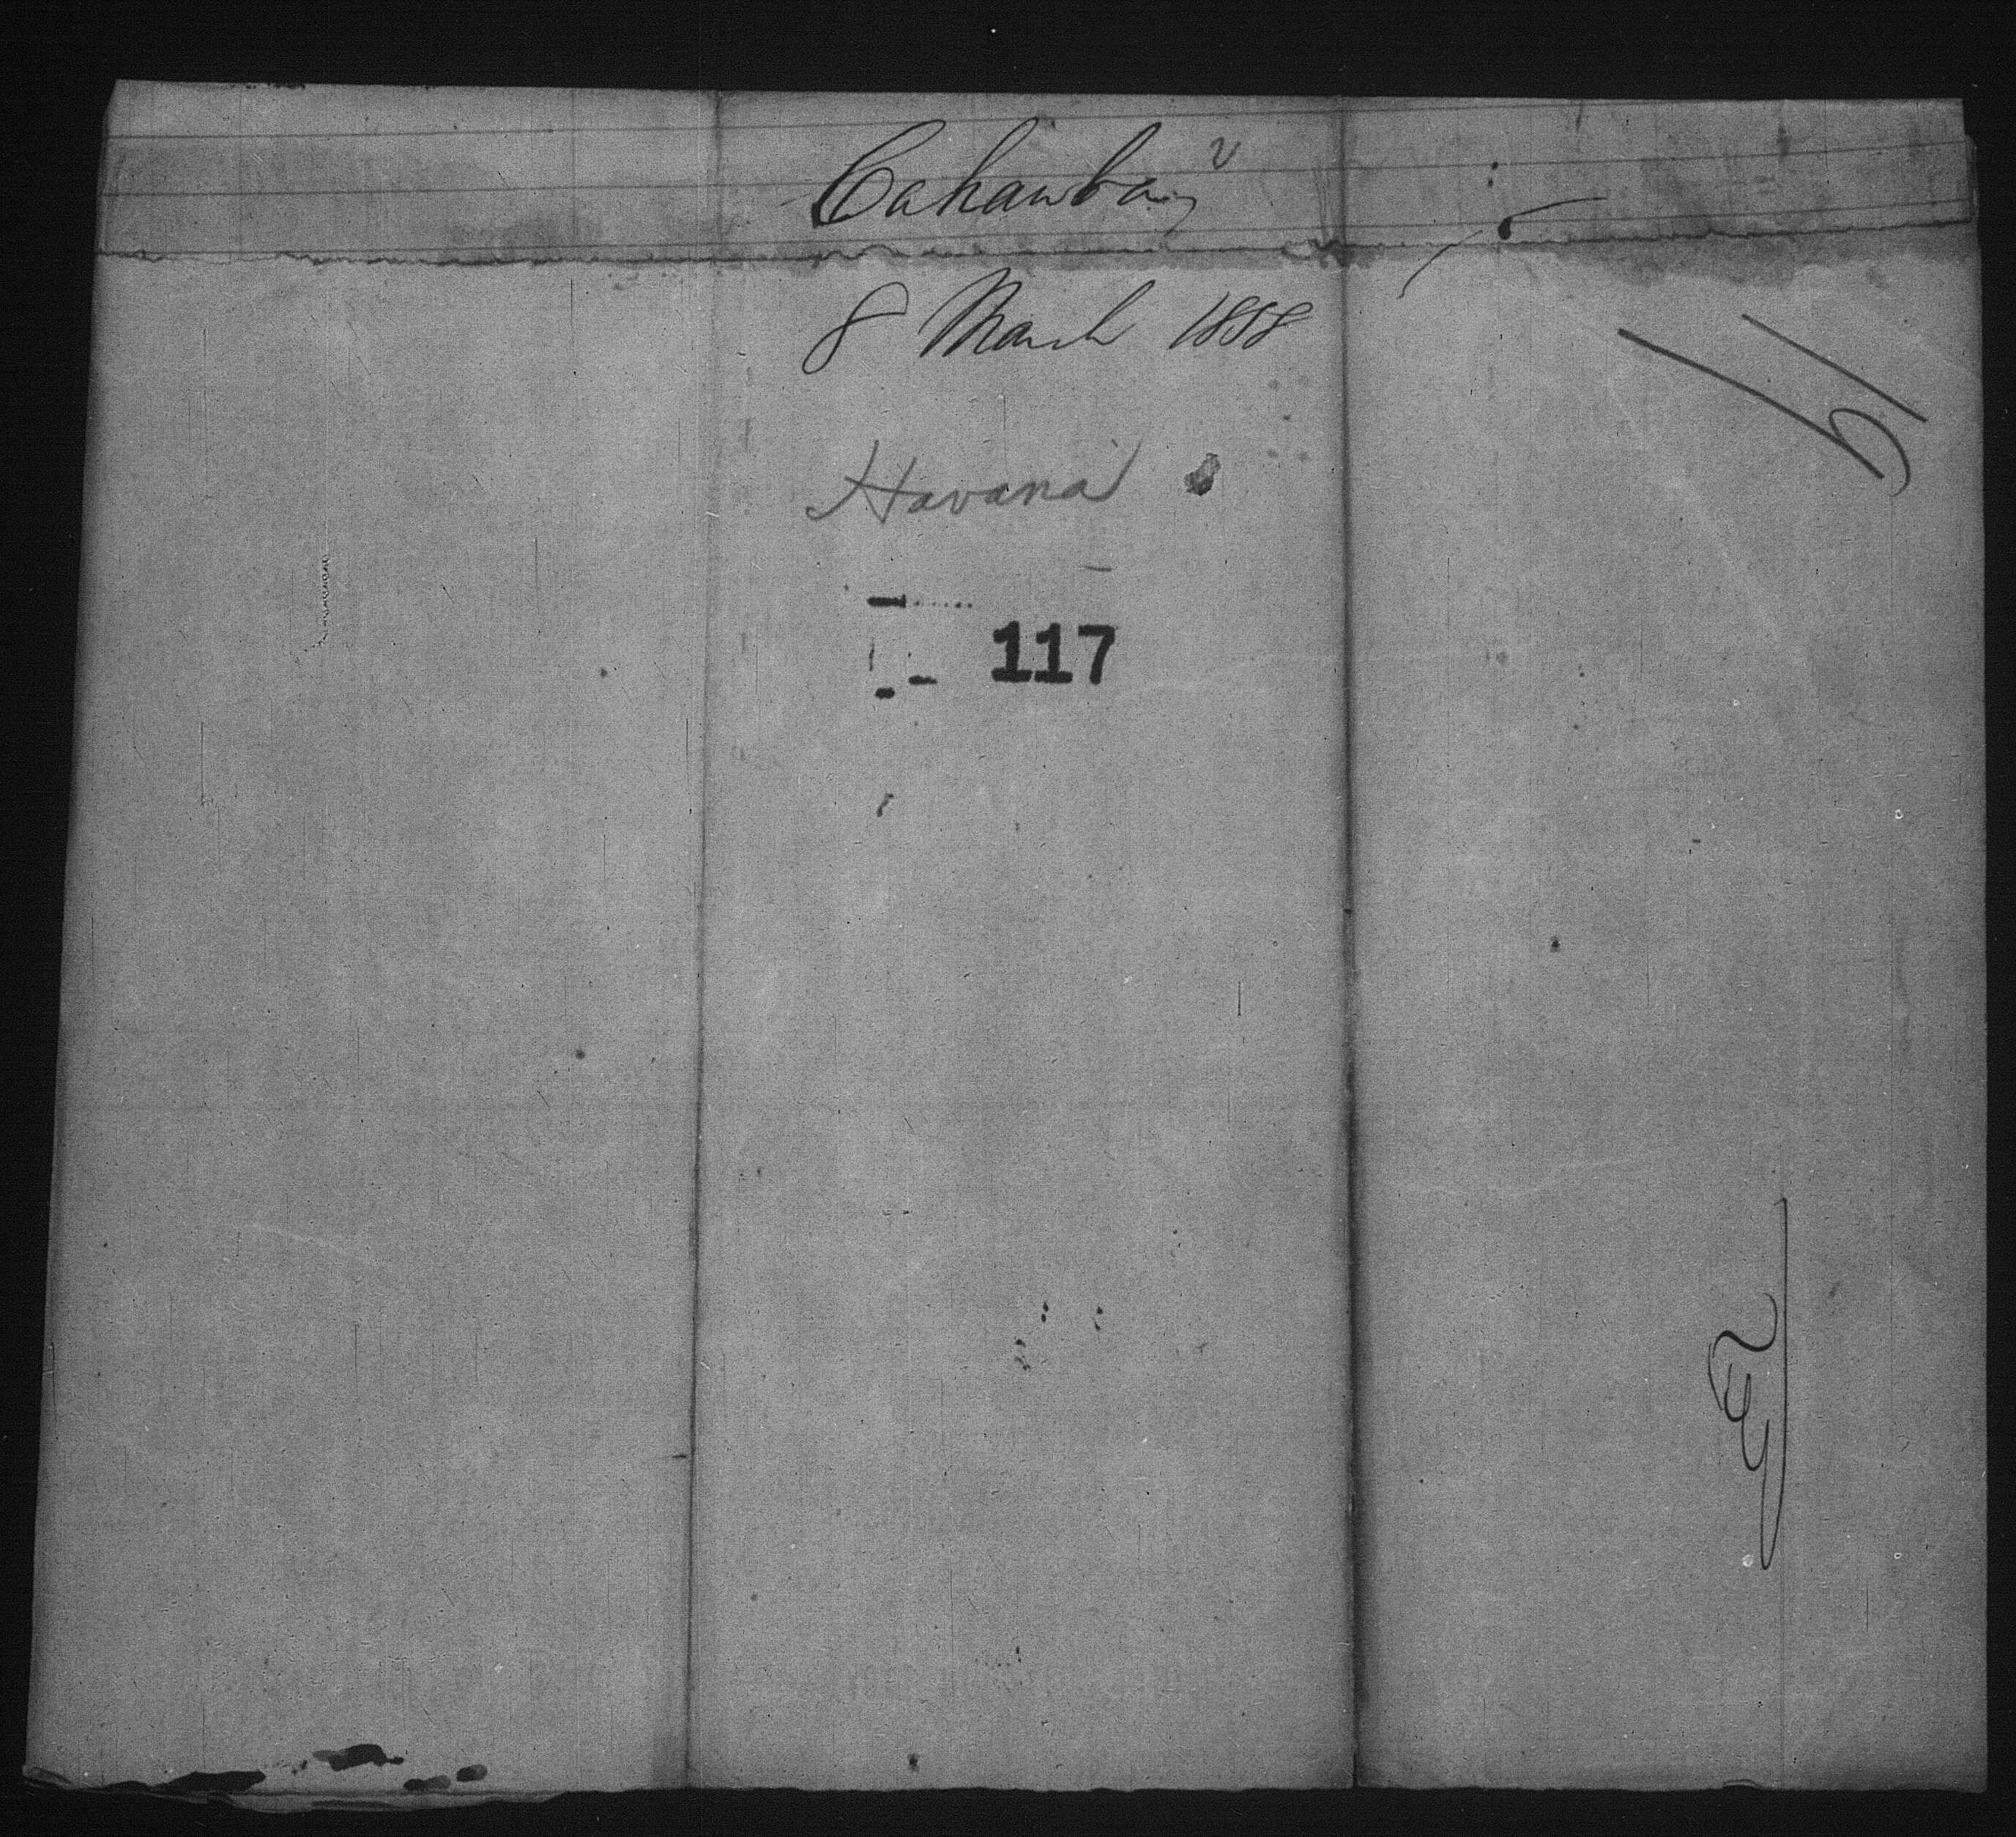 Cahawba
8 March 1858
Havana
117